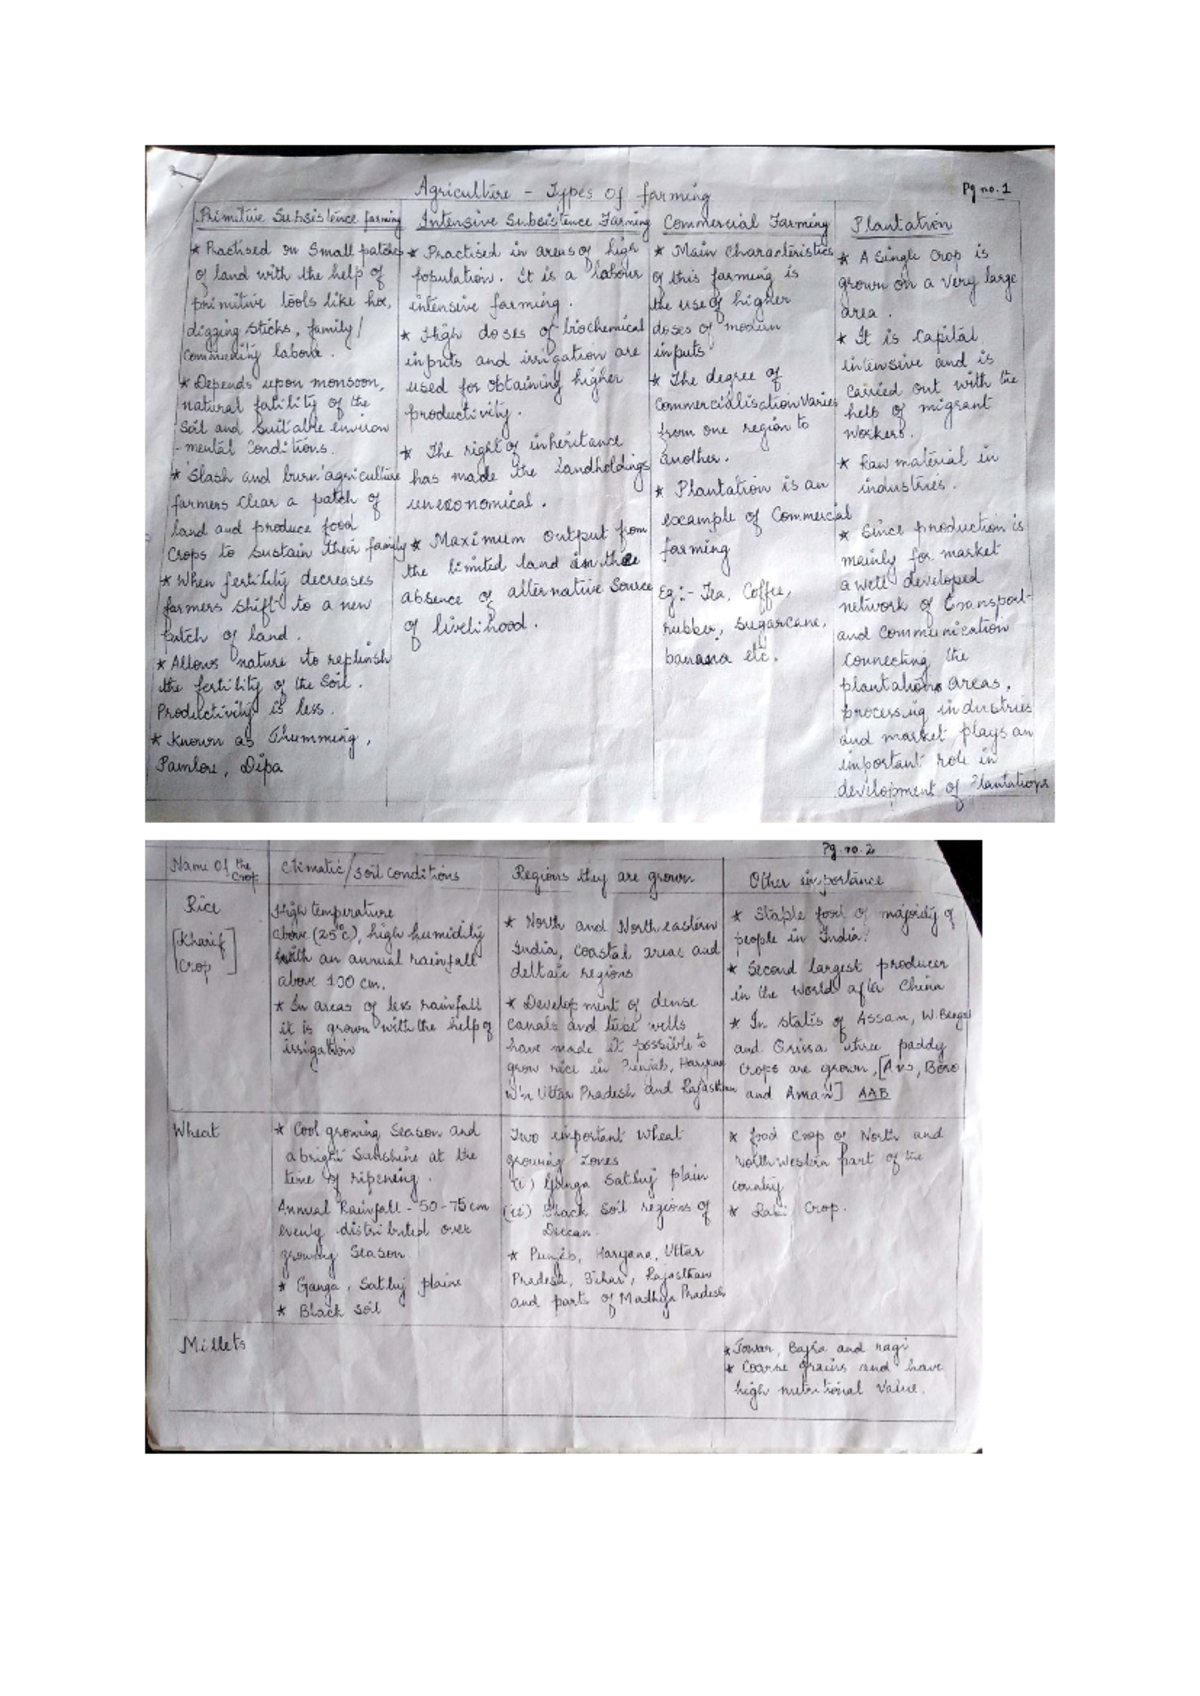 Agriculture - Types of farming
Pg no. 1
Primitive Subsistence farming
* Practised on Small patches
of land with the help of
primitive tools like hoe,
digging sticks, family/
community labour.
* Depends upon monsoon,
natural fertility of the
Soil and suitable environ
-mental Conditions.
* 'Slash and burn' agriculture
farmers clear a patch of
land and produce food
Crops to sustain their family
* When fertility decreases
farmers shift to a new
patch of land.
* Allows nature to replenish
the fertility of the Soil.
Productivity is less.
* Known as Jhumming,
Pamlou, Dipa
Intensive Subsistence Farming
* Practised in areas of high
population. It is a labour
intensive farming.
* High doses of biochemical
inputs and irrigation are
used for obtaining higher
productivity.
* The right of inheritance
has made the landholdings
uneconomical.
* Maximum output from
the limited land in the
absence of alternative Source
of livelihood.
Commercial Farming
* Main Characteristics
of this farming is
the use of higher
doses of modern
inputs
* The degree of
Commercialisation Varies
from one region to
another.
* Plantation is an
example of Commercial
farming
Eg:- Tea, Coffee,
rubber, Sugarcane,
banana etc.
Plantation
* A Single Crop is
grown on a very large
area.
* It is Capital
intensive and is
Carried out with the
help of migrant
workers.
* Raw material in
industries.
* Since production is
mainly for market
a well developed
network of transport
and communication
Connecting the
plantations areas,
processing industries
and market plays an
important role in
development of Plantations
Pg. no. 2
Name Of the Crop
Climatic/soil conditions
Regions they are grown
Other importance
Rice
[Kharif
Crop]
High temperature
above (25°c), high humidity
with an annual rainfall
above 100 cm.
* In areas of less rainfall
it is grown with the help of
irrigation
* North and North eastern
India, coastal areas and
deltaic regions
* Development of dense
canals and tube wells
have made it possible to
grow rice in Punjab, Haryana
W'n Uttar Pradesh and Rajasthan
* Staple food of majority of
people in India.
* Second largest producer
in the World after China
* In states of Assam, W. Bengal
and Orissa three paddy
Crops are grown, [Aus, Boro
and Aman] AAB
Wheat
* Cool growing Season and
a bright Sunshine at the
time of ripening.
Annual Rainfall - 50-75 cm
evenly distributed over
growing Season
* Ganga, Satluj plains
* Black Soil
Two important Wheat
growing Zones
(i) Ganga Satluj plain
(ii) Black Soil regions of
Deccan.
* Punjab, Haryana, Uttar
Pradesh, Bihar, Rajasthan
and parts of Madhya Pradesh
* food Crop of North and
North Western part of the
country
* Rabi Crop.
Millets
* Jowar, Bajra and ragi
* Coarse grains and have
high nutritional Value.